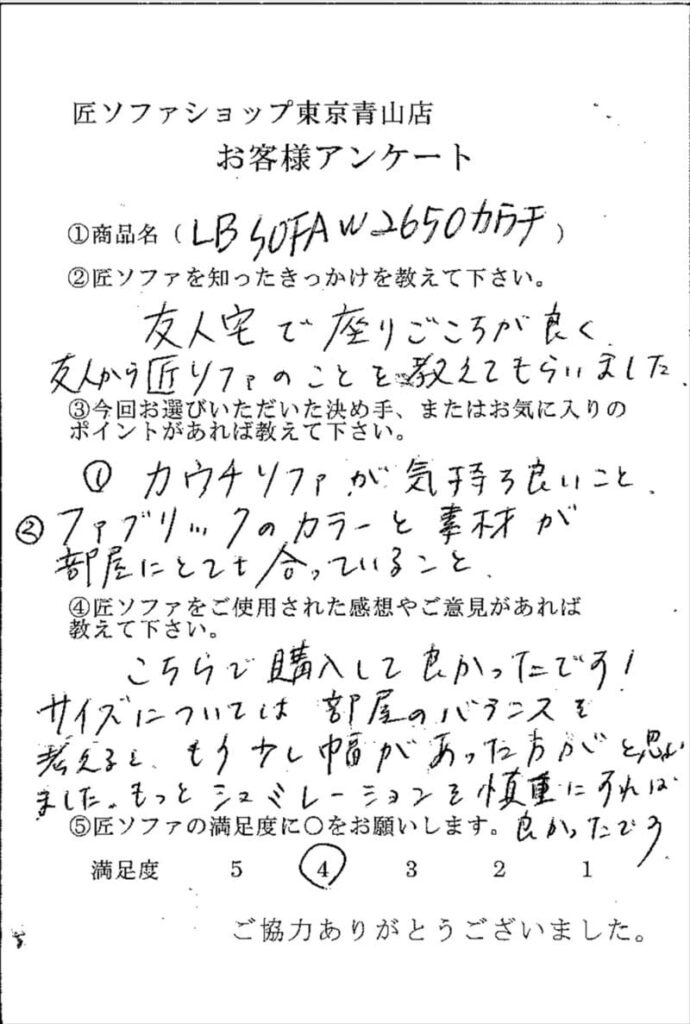 匠ソファショップ東京青山店
お客様アンケート
①商品名（LB SOFA W2650カウチ）
②匠ソファを知ったきっかけを教えて下さい。
友人宅で座りごころが良く、
友人から匠ソファのことを教えてもらいました。
③今回お選びいただいた決め手、またはお気に入りの
ポイントがあれば教えて下さい。
① カウチソファが気持ち良いこと、
② ファブリックのカラーと素材が
部屋にとても合っていること、
④匠ソファをご使用された感想やご意見があれば
教えて下さい。
こちらで購入して良かったです！
サイズについては部屋のバランスを
考えると、もう少し幅があった方がと思い
ました。もっとシュミレーションを慎重にすれば
⑤匠ソファの満足度に○をお願いします。良かったです
満足度 5 ④ 3 2 1
ご協力ありがとうございました。